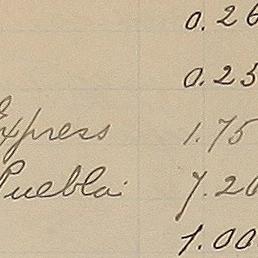 0.26
0.25
Express 1.75
Puebla. 7.20
1.00